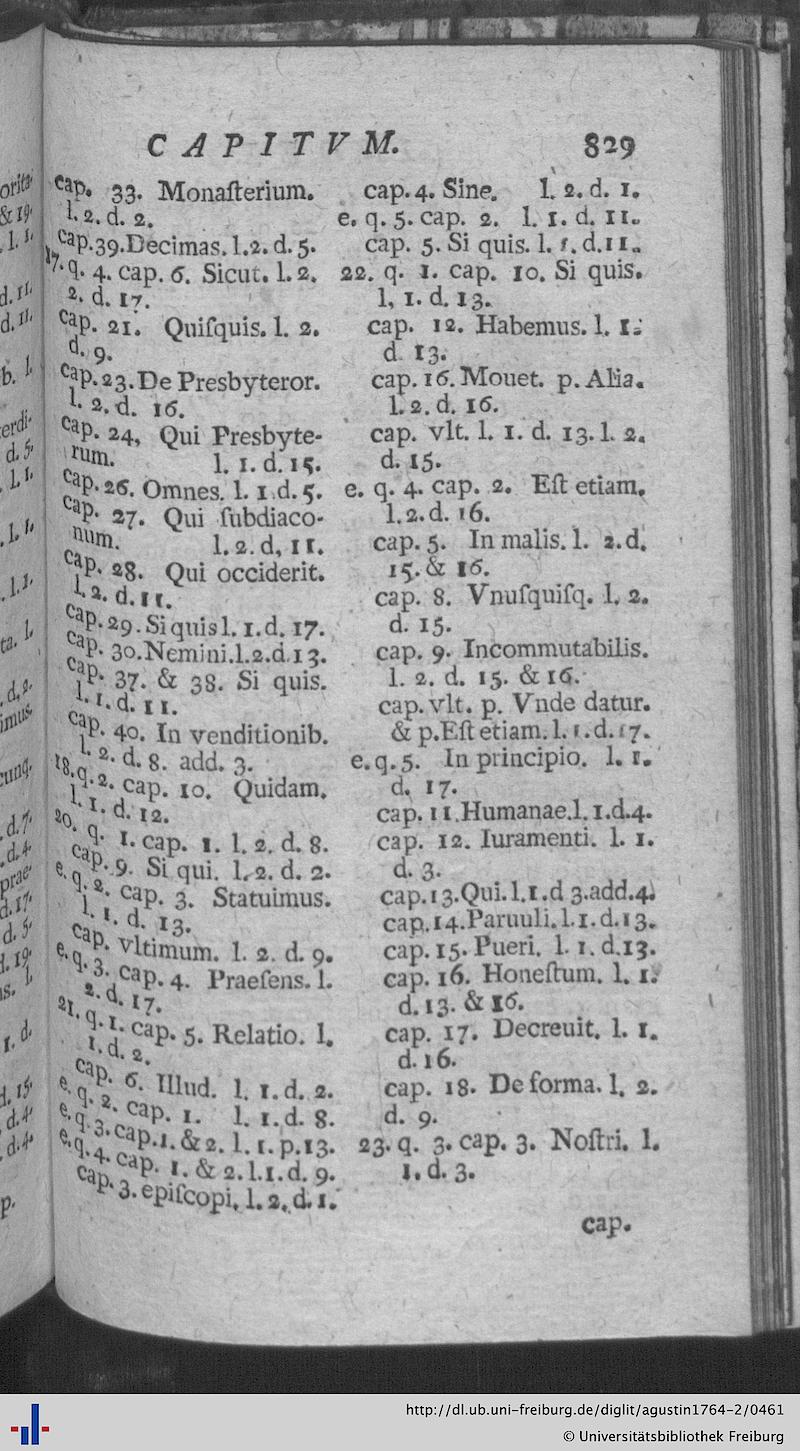 CAPITVM. 829
cap. 33. Monaſterium.
l. 2. d. 2.
cap.39.Decimas.l.2.d.5.
17.q. 4. cap. 6. Sicut. l. 2.
2. d. 17.
cap. 21. Quiſquis. l. 2.
d. 9.
cap.23.De Presbyteror.
l. 2. d. 16.
cap. 24, Qui Presbyte-
rum. l. 1. d. 15.
cap.26. Omnes. l. 1.d. 5.
cap. 27. Qui ſubdiaco-
num. l. 2. d, 11.
cap. 28. Qui occiderit.
l. 2. d. 11.
cap.29.Si quis l. 1.d. 17.
cap. 30.Nemini.l.2.d.13.
cap. 37. & 38. Si quis.
l. 1. d. 11.
cap. 40. In venditionib.
l. 2. d. 8. add. 3.
18.q.2. cap. 10. Quidam.
l. 1. d. 12.
20. q. 1. cap. 1. l. 2. d. 8.
cap. 9. Si qui. l. 2. d. 2.
e. q. 2. cap. 3. Statuimus.
l. 1. d. 13.
cap. vltimum. l. 2. d. 9.
e. q. 3. cap. 4. Praeſens. l.
2. d. 17.
21. q. 1. cap. 5. Relatio. l.
1. d. 2.
cap. 6. Illud. l. 1. d. 2.
e. q. 2. cap. 1. l. 1. d. 8.
e. q. 3. cap.1. & 2. l. 1. p.13.
e. q. 4. cap. 1. & 2. l.1. d. 9.
cap. 3. epiſcopi, l. 2. d. 1.
cap. 4. Sine. l. 2. d. 1.
e. q. 5. cap. 2. l. 1. d. 11.
cap. 5. Si quis. l. 1. d.11.
22. q. 1. cap. 10. Si quis.
l, 1. d. 13.
cap. 12. Habemus. l. 1.
d 13.
cap. 16. Mouet. p. Alia.
l. 2. d. 16.
cap. vlt. l. 1. d. 13. l. 2.
d. 15.
e. q. 4. cap. 2. Eſt etiam.
l. 2. d. 16.
cap. 5. In malis. l. 2. d.
15. & 16.
cap. 8. Vnuſquiſq. l. 2.
d. 15.
cap. 9. Incommutabilis.
l. 2. d. 15. & 16.
cap. vlt. p. Vnde datur.
& p.Eſt etiam. l. 1. d. 17.
e. q. 5. In principio. l. 1.
d. 17.
cap. 11.Humanae.l.1.d.4.
cap. 12. Iuramenti. l. 1.
d. 3.
cap.13.Qui.l.1.d 3.add.4.
cap.14.Paruuli.l.1.d.13.
cap. 15. Pueri. l. 1. d.13.
cap. 16. Honeſtum. l. 1.
d. 13. & 16.
cap. 17. Decreuit. l. 1.
d. 16.
cap. 18. De forma. l. 2.
d. 9.
23. q. 3. cap. 3. Noſtri. l.
1. d. 3.
cap.
http://dl.ub.uni-freiburg.de/diglit/agustin1764-2/0461
© Universitätsbibliothek Freiburg